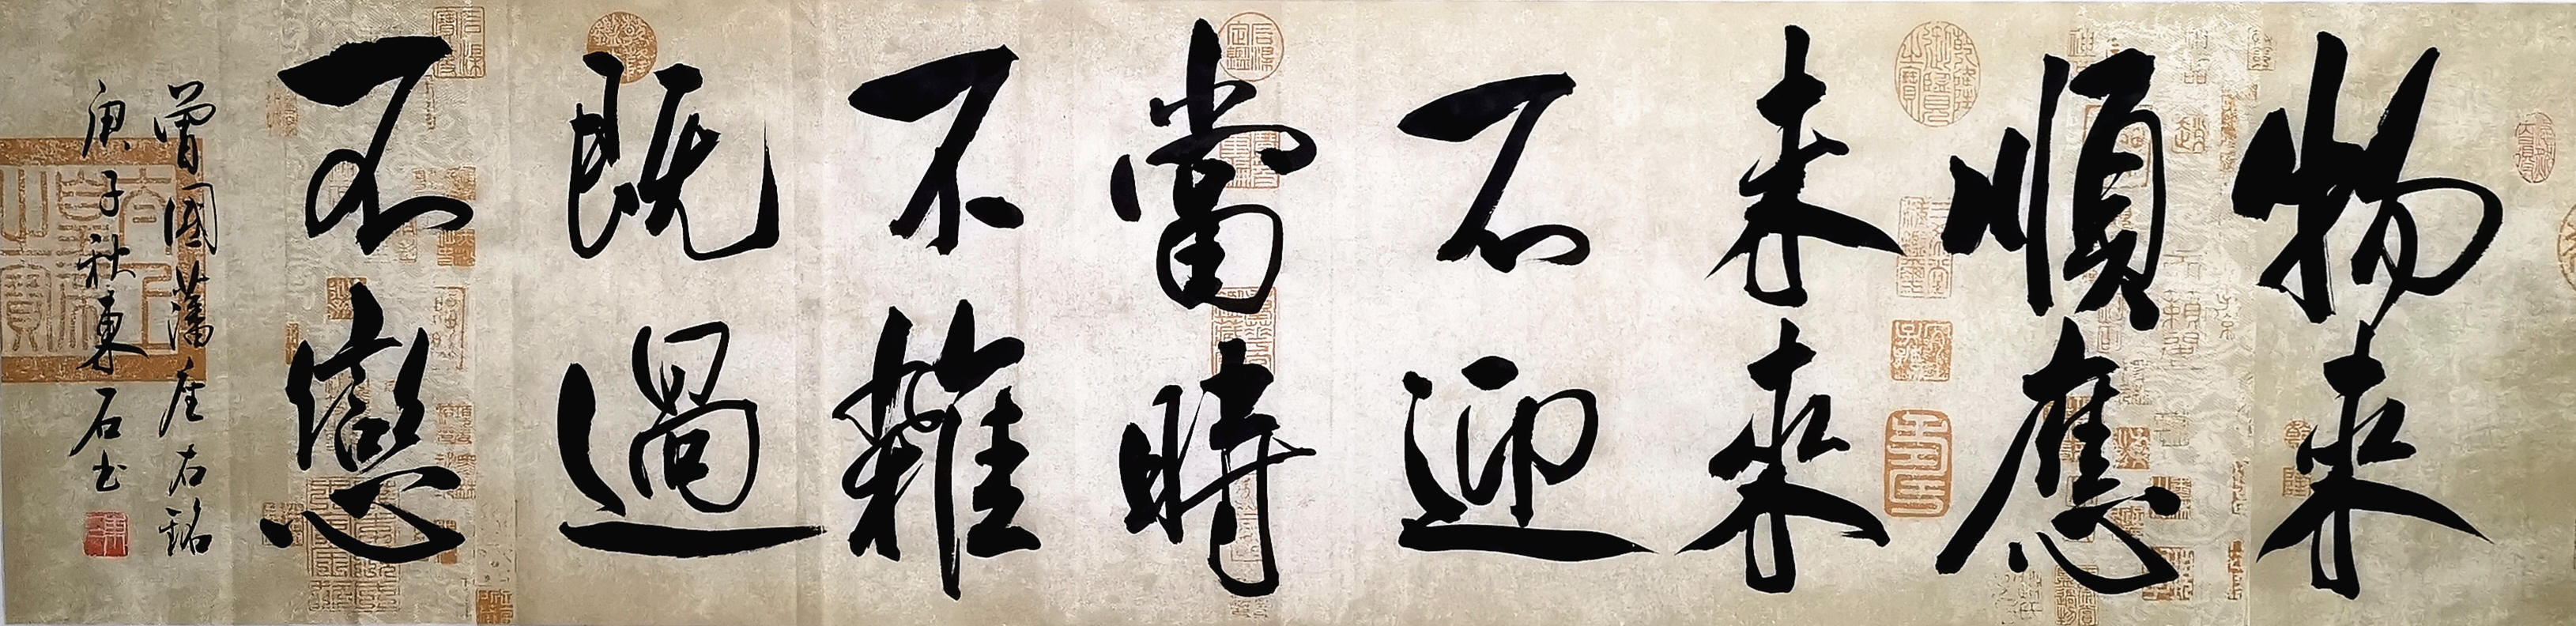 物來
順應
未來
不迎
當時
不雜
既過
不戀
曾國藩座右銘
庚子秋東石書